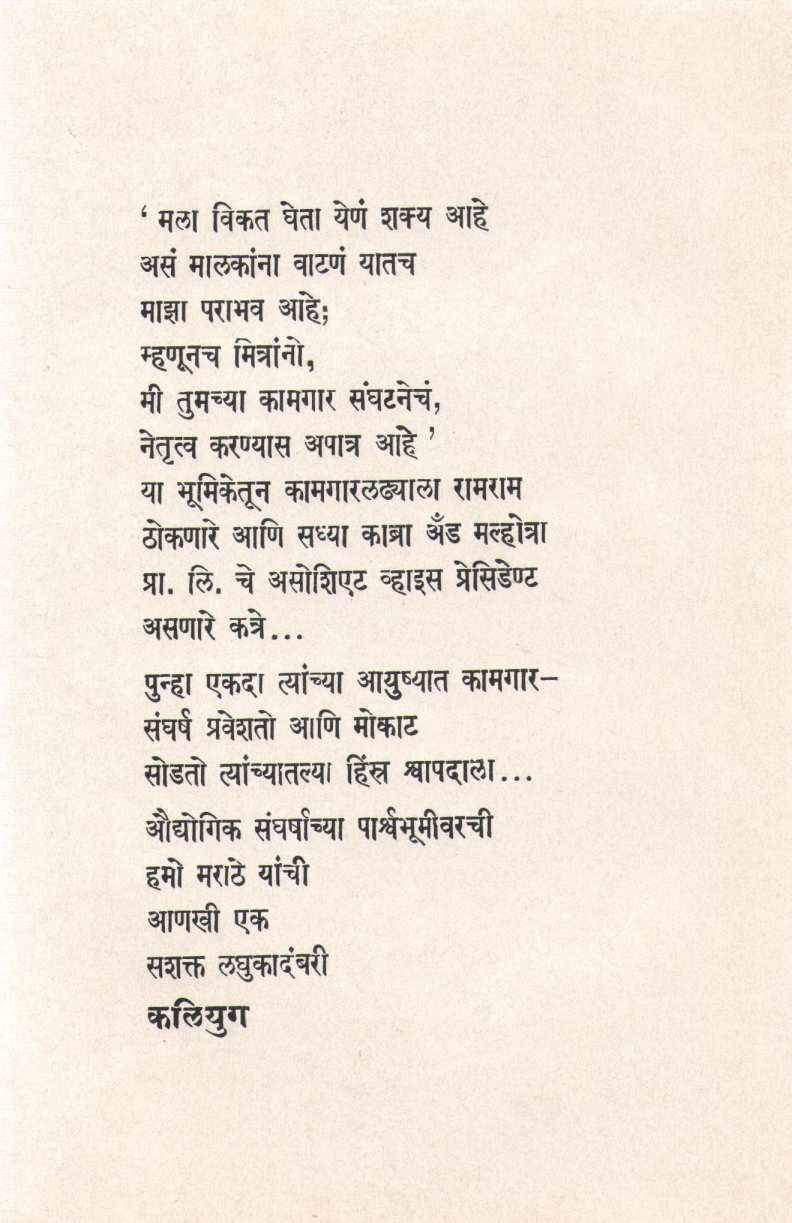 ‘ मला विकत घेता येणं शक्य आहे
असं मालकांना वाटणं यातच
माझा पराभव आहे;
म्हणूनच मित्रांनो,
मी तुमच्या कामगार संघटनेचं,
नेतृत्व करण्यास अपात्र आहे ’
या भूमिकेतून कामगारलढ्याला रामराम
ठोकणारे आणि सध्या काब्रा अँड मल्होत्रा
प्रा. लि. चे असोशिएट व्हाइस प्रेसिडेण्ट
असणारे कत्रे...
पुन्हा एकदा त्यांच्या आयुष्यात कामगार–
संघर्ष प्रवेशतो आणि मोकाट
सोडतो त्यांच्यातल्या हिंस्र श्वापदाला...
औद्योगिक संघर्षाच्या पार्श्वभूमीवरची
हमो मराठे यांची
आणखी एक
सशक्त लघुकादंबरी
कलियुग